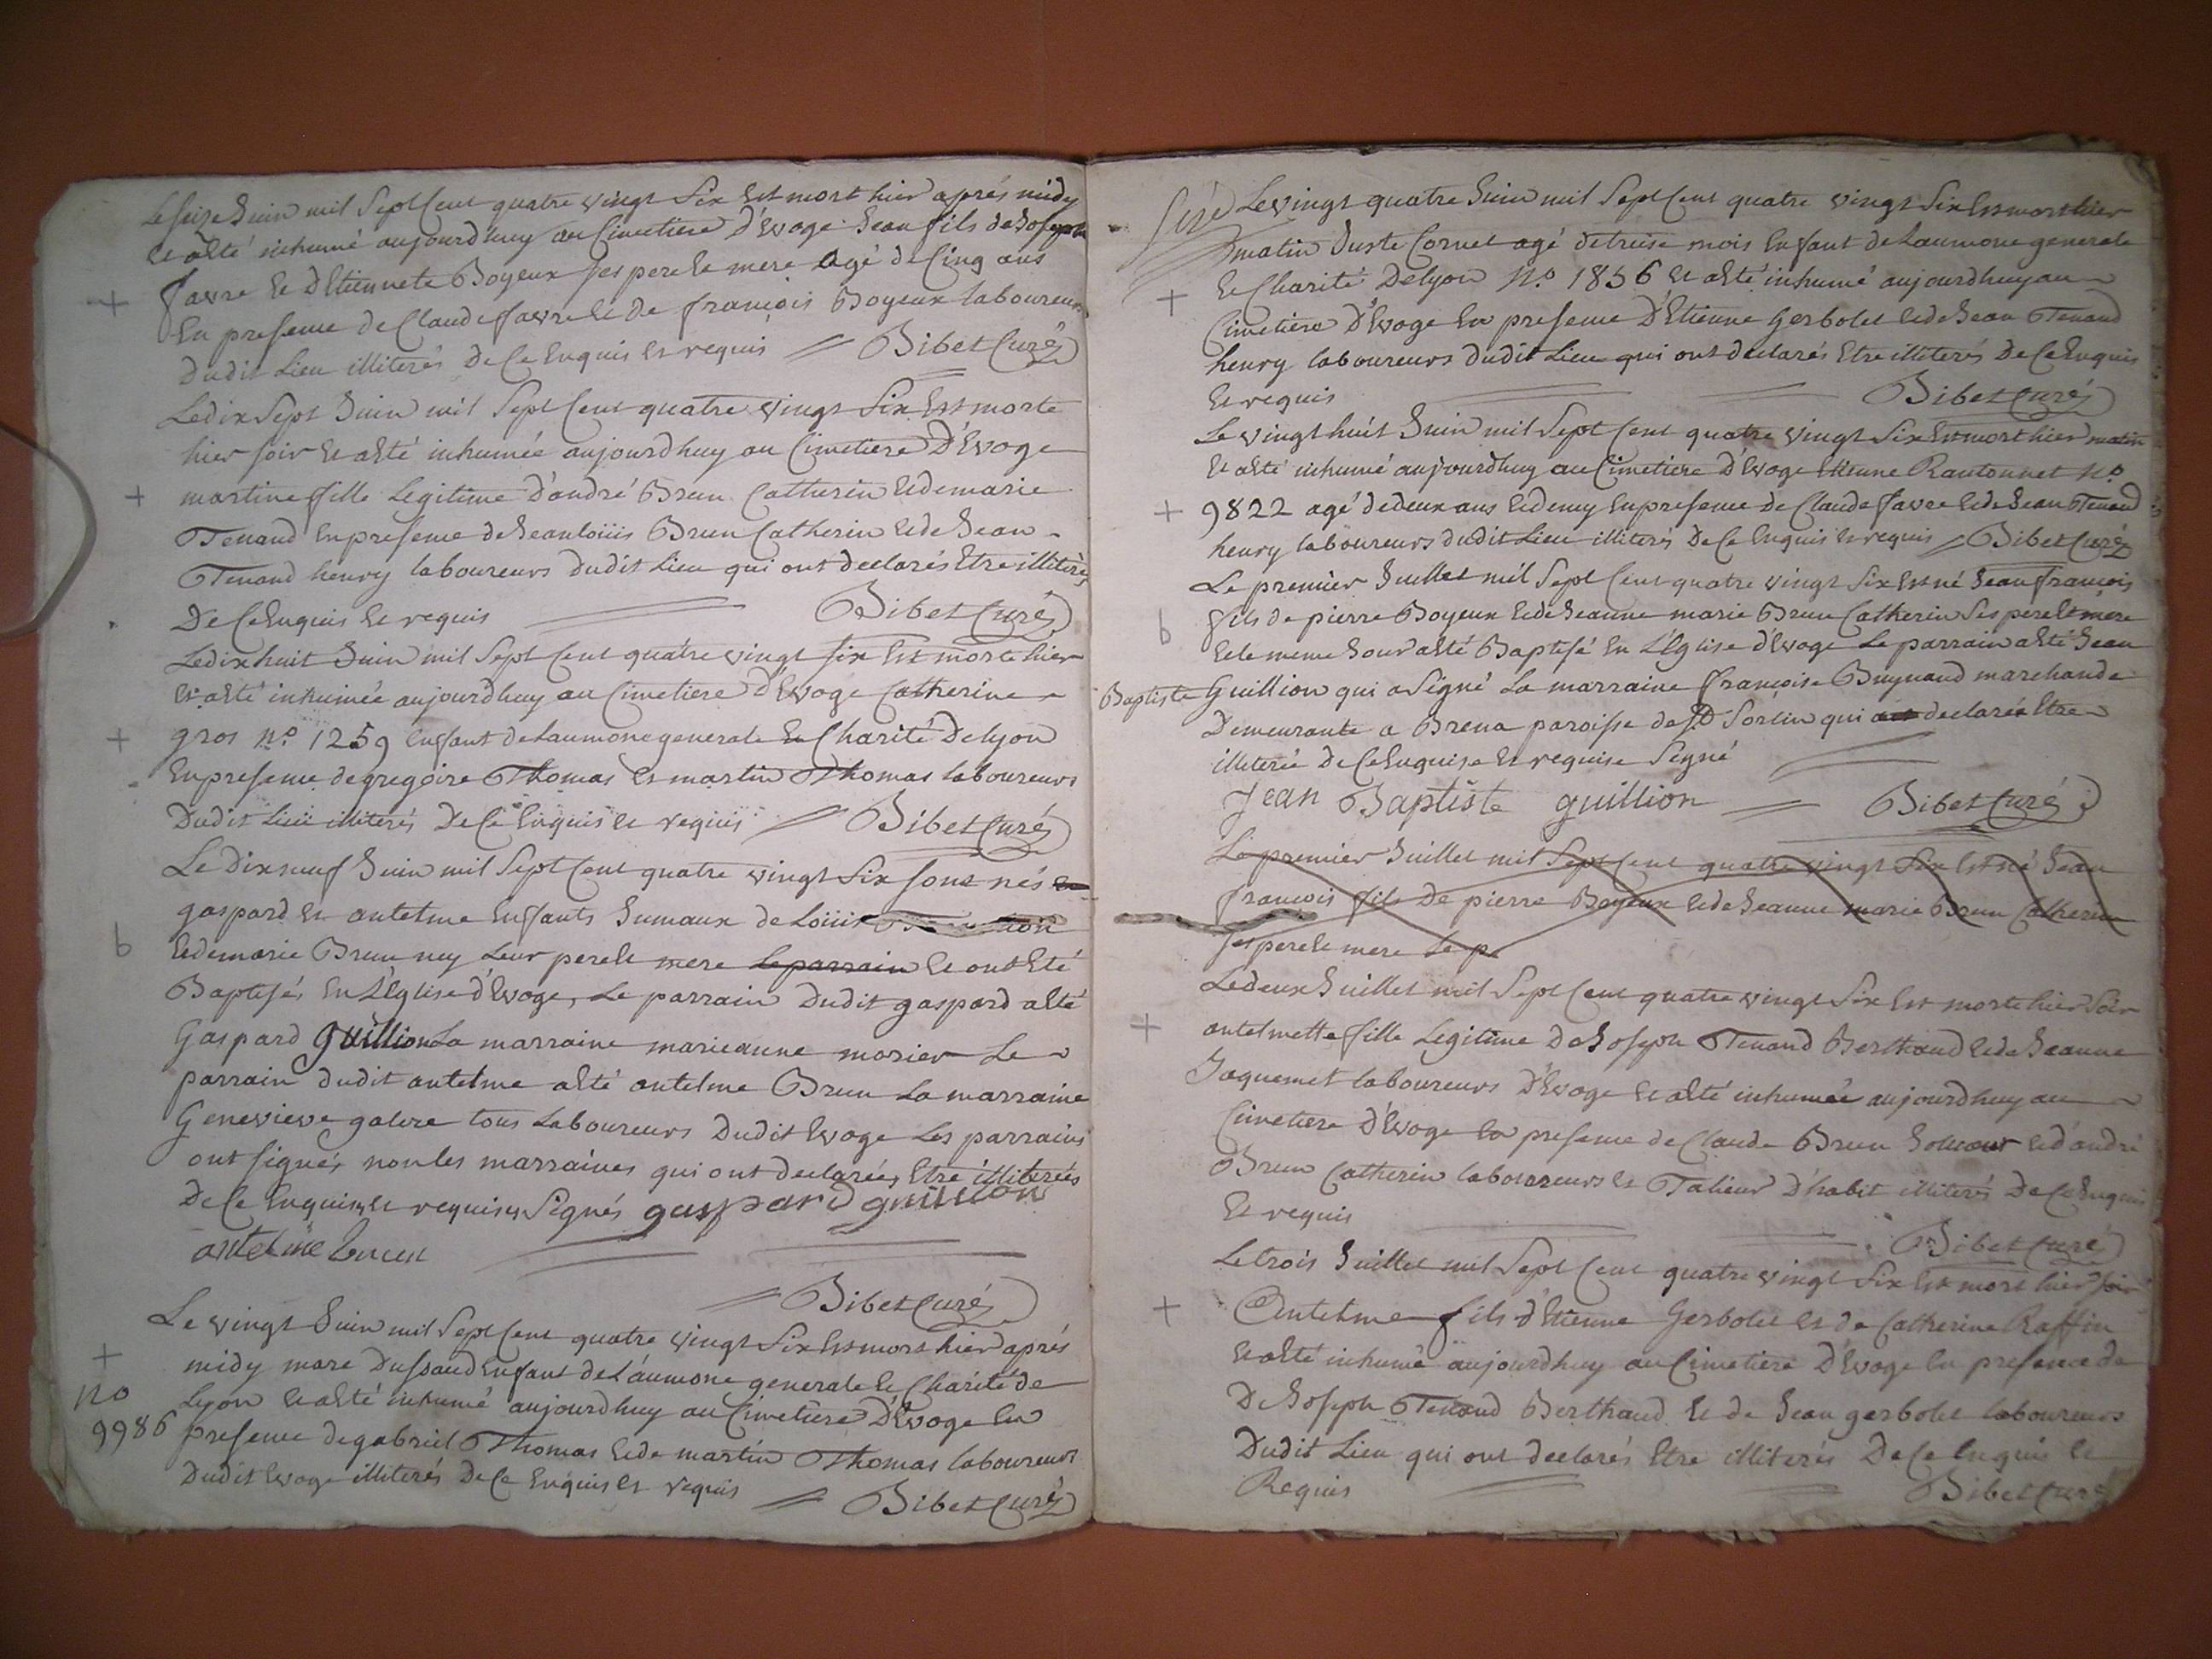 Le seize Juin mil Sept Cent quatre vingt Six Est mort hier après midy
Et a Eté inhumé aujourdhuy au Cimetiere D'Evoge Jean fils de Joseph
+ favre Et D'Etiennete Boyeux Ses pere Et mere agé de Cinq ans
En presence de Claude favre Et De françois Boyeux laboureurs
Dudit Lieu illiterés De Ce Enquis Et requis Bibet Curé
Le dix Sept Juin mil Sept Cent quatre vingt Six Est morte
hier soir Et a Eté inhumée aujourdhuy au Cimetiere D'Evoge
+ martine fille Legitime D'andré Brun Catherin Et de marie
Tenand En presence de Jean loüis Brun Catherin Et de Jean
Tenand henry laboureurs Dudit Lieu qui ont declarés Etre illiterés
De Ce Enquis Et requis Bibet Curé
Le dix huit Juin mil Sept Cent quatre vingt Six Est morte hier
Et a Eté inhumée aujourdhuy au Cimetiere d'Evoge Catherine
+ gros No 1259 Enfant de Laumone generale Et Charité De lyon
En presence de gregoire Thomas Et martin Thomas laboureurs
Dudit Lieu illiterés De Ce Enquis Et requis Bibet Curé
Le Dix neuf Juin mil Sept Cent quatre vingt Six sont nés
gaspard Et antelme Enfants Jumaux de Loüis
b Et de marie Brun ney Leur pere Et mere Le parrain Et ont Eté
Baptisés En L'Eglise d'Evoge, Le parrain Dudit gaspard a Eté
Gaspard guillion La marraine marieanne morier Le
parrain dudit antelme a Eté antelme Brun La marraine
Genevieve galere tous Laboureurs Dudit Evoge Les parrains
ont signés non les marraines qui ont declarées Etre illiterées
De Ce Enquises Et requises Signés gaspard guillion
antelme brun
Bibet Curé
Le vingt Juin mil Sept Cent quatre vingt Six Est mort hier après
+ midy marc Dussaud Enfant de L'aumone generale Et Charité de
no Lyon Et a Eté inhumé aujourdhuy au Cimetiere D'Evoge En
9986 presence de gabriel Thomas Et de martin Thomas laboureurs
Dudit Evoge illiterés De Ce Enquis Et requis Bibet Curé
Le vingt quatre Juin mil Sept Cent quatre vingt Six Est mort hier
matin Juste Cornet agé de treise mois Enfant de Laumone generale
+ Et Charité De lyon No 1856 Et a Eté inhumé aujourdhuy au
Cimetiere D'Evoge En presence D'Etienne Gerbolet Et de Jean Tenand
henry laboureurs Dudit Lieu qui ont declarés Etre illiterés De Ce Enquis
Et requis Bibet Curé
Le vingt huit Juin mil Sept Cent quatre vingt Six Est mort hier matin
Et a Eté inhumé aujourdhuy au Cimetiere D'Evoge Etienne Rantonnet No
+ 9822 agé de deux ans Et demy En presence de Claude favre Et de Jean Tenand
henry laboureurs dudit Lieu illiterés De Ce Enquis Et requis Bibet Curé
Le premier Juillet mil Sept Cent quatre vingt Six Est né Jean françois
b fils de pierre Boyeux Et de Jeanne marie Brun Catherin Ses pere Et mere
Et le meme Jour a Eté Baptisé En L'Eglise d'Evoge Le parrain a Eté Jean
Baptiste Guillion qui a Signé La marraine françoise Buynand marchande
Demeurante a Brena paroisse de St Sorlin qui a declarée Etre
illiterée De Ce Enquise Et requise Signé
Jean Baptiste guillion Bibet Curé
Le premier Juillet mil Sept Cent quatre vingt Six Est né Jean
françois fils De pierre Boyeux Et de Jeanne marie Brun Catherin
Ses pere Et mere Le p
Le deux Juillet mil Sept Cent quatre vingt Six Est morte hier soir
+ antelmette fille Legitime De Joseph Tenand Berthaud Et de Jeanne
Jaquemet laboureurs D'Evoge Et a Eté inhumée aujourdhuy au
Cimetiere D'Evoge En presence de Claude Brun Et d'andré
Brun Catherin laboureurs Et Talieur D'habit illiterés De Ce Enquis
Et requis
Bibet Curé
Le trois Juillet mil Sept Cent quatre vingt Six Est mort hier soir
+ Antelme fils d'Etienne Gerbolet Et de Catherine Raffin
Et a Eté inhumé aujourdhuy au Cimetiere D'Evoge En presence de
De Joseph Tenand Berthaud Et de Jean gerbolet laboureurs
Dudit Lieu qui ont declarés Etre illiterés De Ce Enquis Et
Requis Bibet Curé